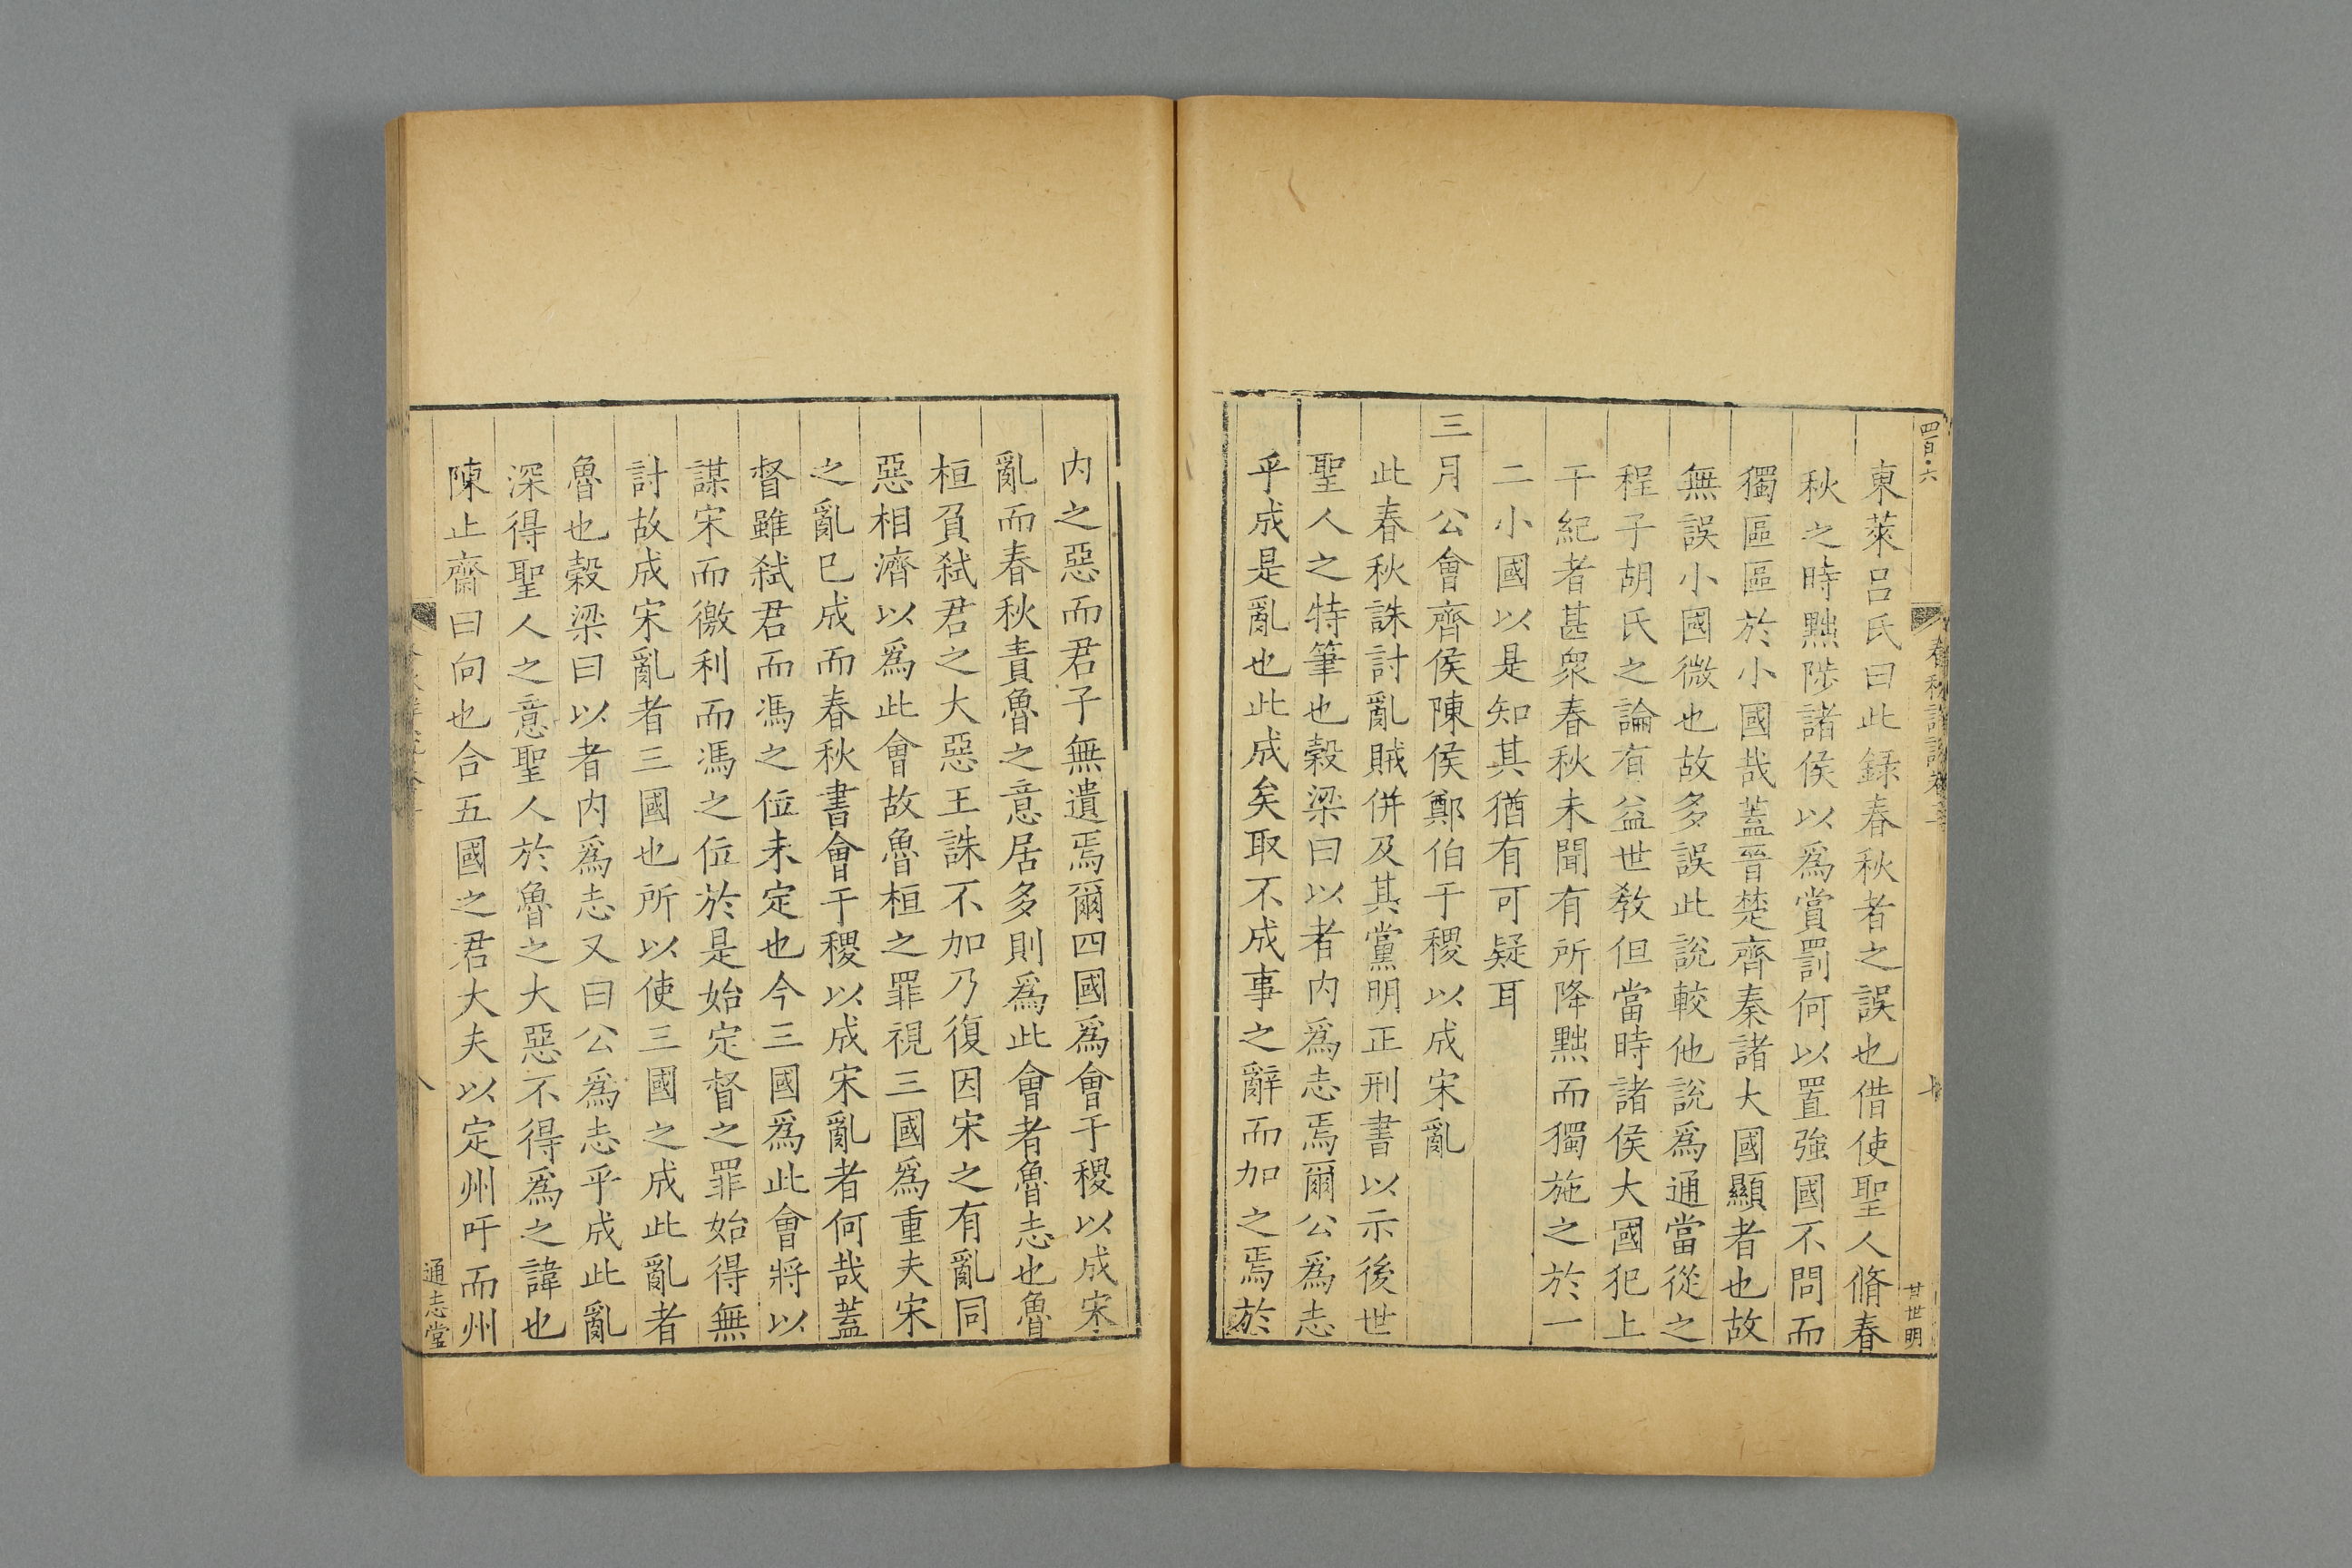 四百六
春秋詳說卷三
甘世明
東萊呂氏曰此録春秋者之誤也借使聖人脩春
秋之時黜陟諸侯以爲賞罰何以置強國不問而
獨區區於小國哉蓋晉楚齊秦諸大國顯者也故
無誤小國微也故多誤此說較他說爲通當從之
程子胡氏之論有益世教但當時諸侯大國犯上
干紀者甚衆春秋未聞有所降黜而獨施之於一
二小國以是知其猶有可疑耳
三月公會齊侯陳侯鄭伯于稷以成宋亂
此春秋誅討亂賊併及其黨明正刑書以示後世
聖人之特筆也穀梁曰以者内爲志焉爾公爲志
乎成是亂也此成矣取不成事之辭而加之焉於
内之惡而君子無遺焉爾四國爲會于稷以成宋
亂而春秋責魯之意居多則爲此會者魯志也魯
桓負弑君之大惡王誅不加乃復因宋之有亂同
惡相濟以爲此會故魯桓之罪視三國爲重夫宋
之亂已成而春秋書會于稷以成宋亂者何哉蓋
督雖弑君而馮之位未定也今三國爲此會將以
謀宋而徼利而馮之位於是始定督之罪始得無
討故成宋亂者三國也所以使三國之成此亂者
魯也穀梁曰以者内爲志又曰公爲志乎成此亂
深得聖人之意聖人於魯之大惡不得爲之諱也
陳止齋曰向也合五國之君大夫以定州吁而州
通志堂